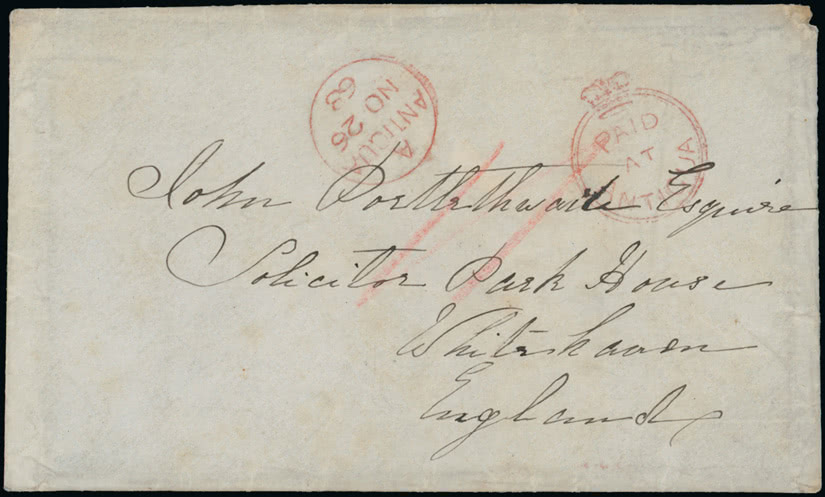 A
ANTIGUA
NO 26
63
PAID
AT
ANTIGUA
John Postlethwaite Esquire
Solicitor Park House
Whitehaven
England